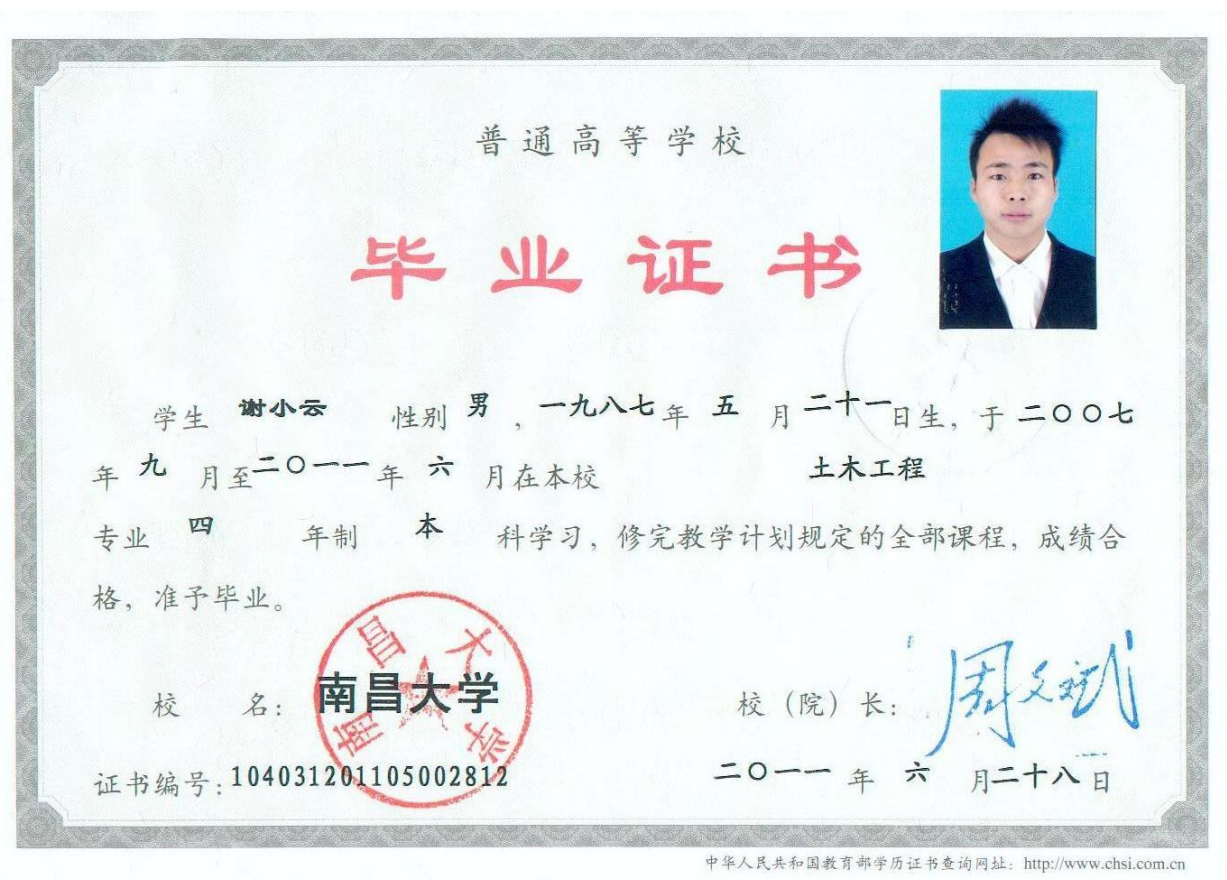 普通高等学校
毕业证书
学生 谢小云 性别 男 ，一九八七 年 五 月 二十一 日生，于 二〇〇七
年 九 月至 二〇一一 年 六 月在本校 土木工程
专业 四 年制 本 科学习，修完教学计划规定的全部课程，成绩合
格，准予毕业。
南昌大学
校 名：南昌大学 校（院）长：周文斌
证书编号：104031201105002812 二〇一一 年 六 月 二十八 日
中华人民共和国教育部学历证书查询网址：http://www.chsi.com.cn